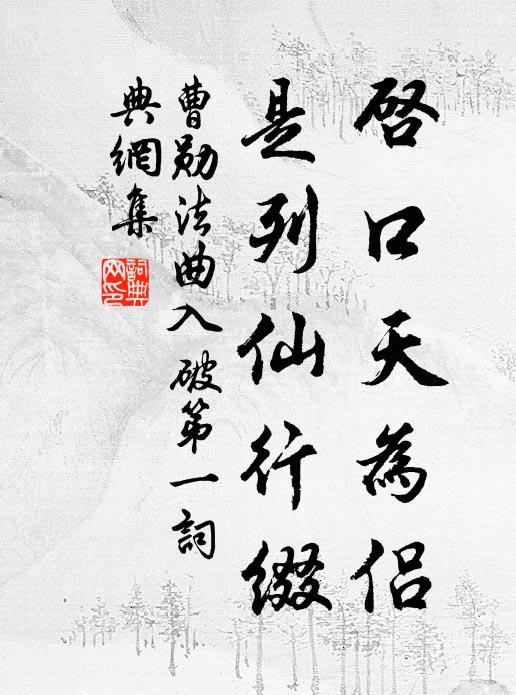 啓口天為侶
是列仙行綴
曹勛法曲入破第一詞
典網集
詞典網印